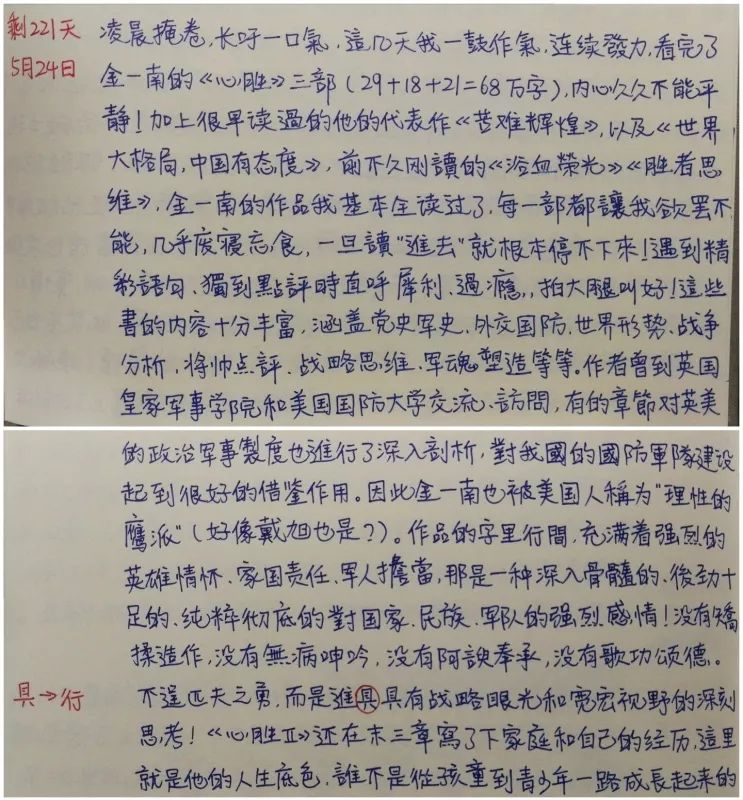 剩221天
5月24日
凌晨掩卷,长吁一口氣,這几天我一鼓作氣,连续發力,看完了
金一南的《心胜》三部(29+18+21=68万字),内心久久不能平
静!加上很早读過的他的代表作《苦难辉煌》,以及《世界
大格局,中国有态度》,前不久刚讀的《浴血榮光》《胜者思
维》,金一南的作品我基本全读过了,每一部都讓我欲罢不
能,几乎废寝忘食,一旦讀"進去"就根本停不下来!遇到精
彩語句、獨到點評時直呼犀利、過瘾,拍大腿叫好!這些
書的内容十分丰富,涵盖党史军史、外交国防、世界形势、战争
分析,将帅点評、战略思维、军魂塑造等等。作者曾到英国
皇家军事学院和美国国防大学交流、訪問,有的章節对英美
的政治军事製度也進行了深入剖析,對我國的國防軍隊建设
起到很好的借鉴作用。因此金一南也被美国人稱为"理性的
鷹派"(好像戴旭也是?)。作品的字里行間,充满着强烈的
英雄情怀、家国责任、军人擔當,那是一种深入骨髓的、後劲十
足的、纯粹彻底的對国家、民族、军队的强烈感情!没有矯
揉造作,没有無病呻吟,没有阿諛奉承,没有歌功颂德。
具→行
不逞匹夫之勇,而是進具具有战略眼光和宽宏视野的深刻
思考!《心胜Ⅱ》还在末三章寫了下家庭和自己的经历,這里
就是他的人生底色,誰不是從孩童到青少年一路成長起来的